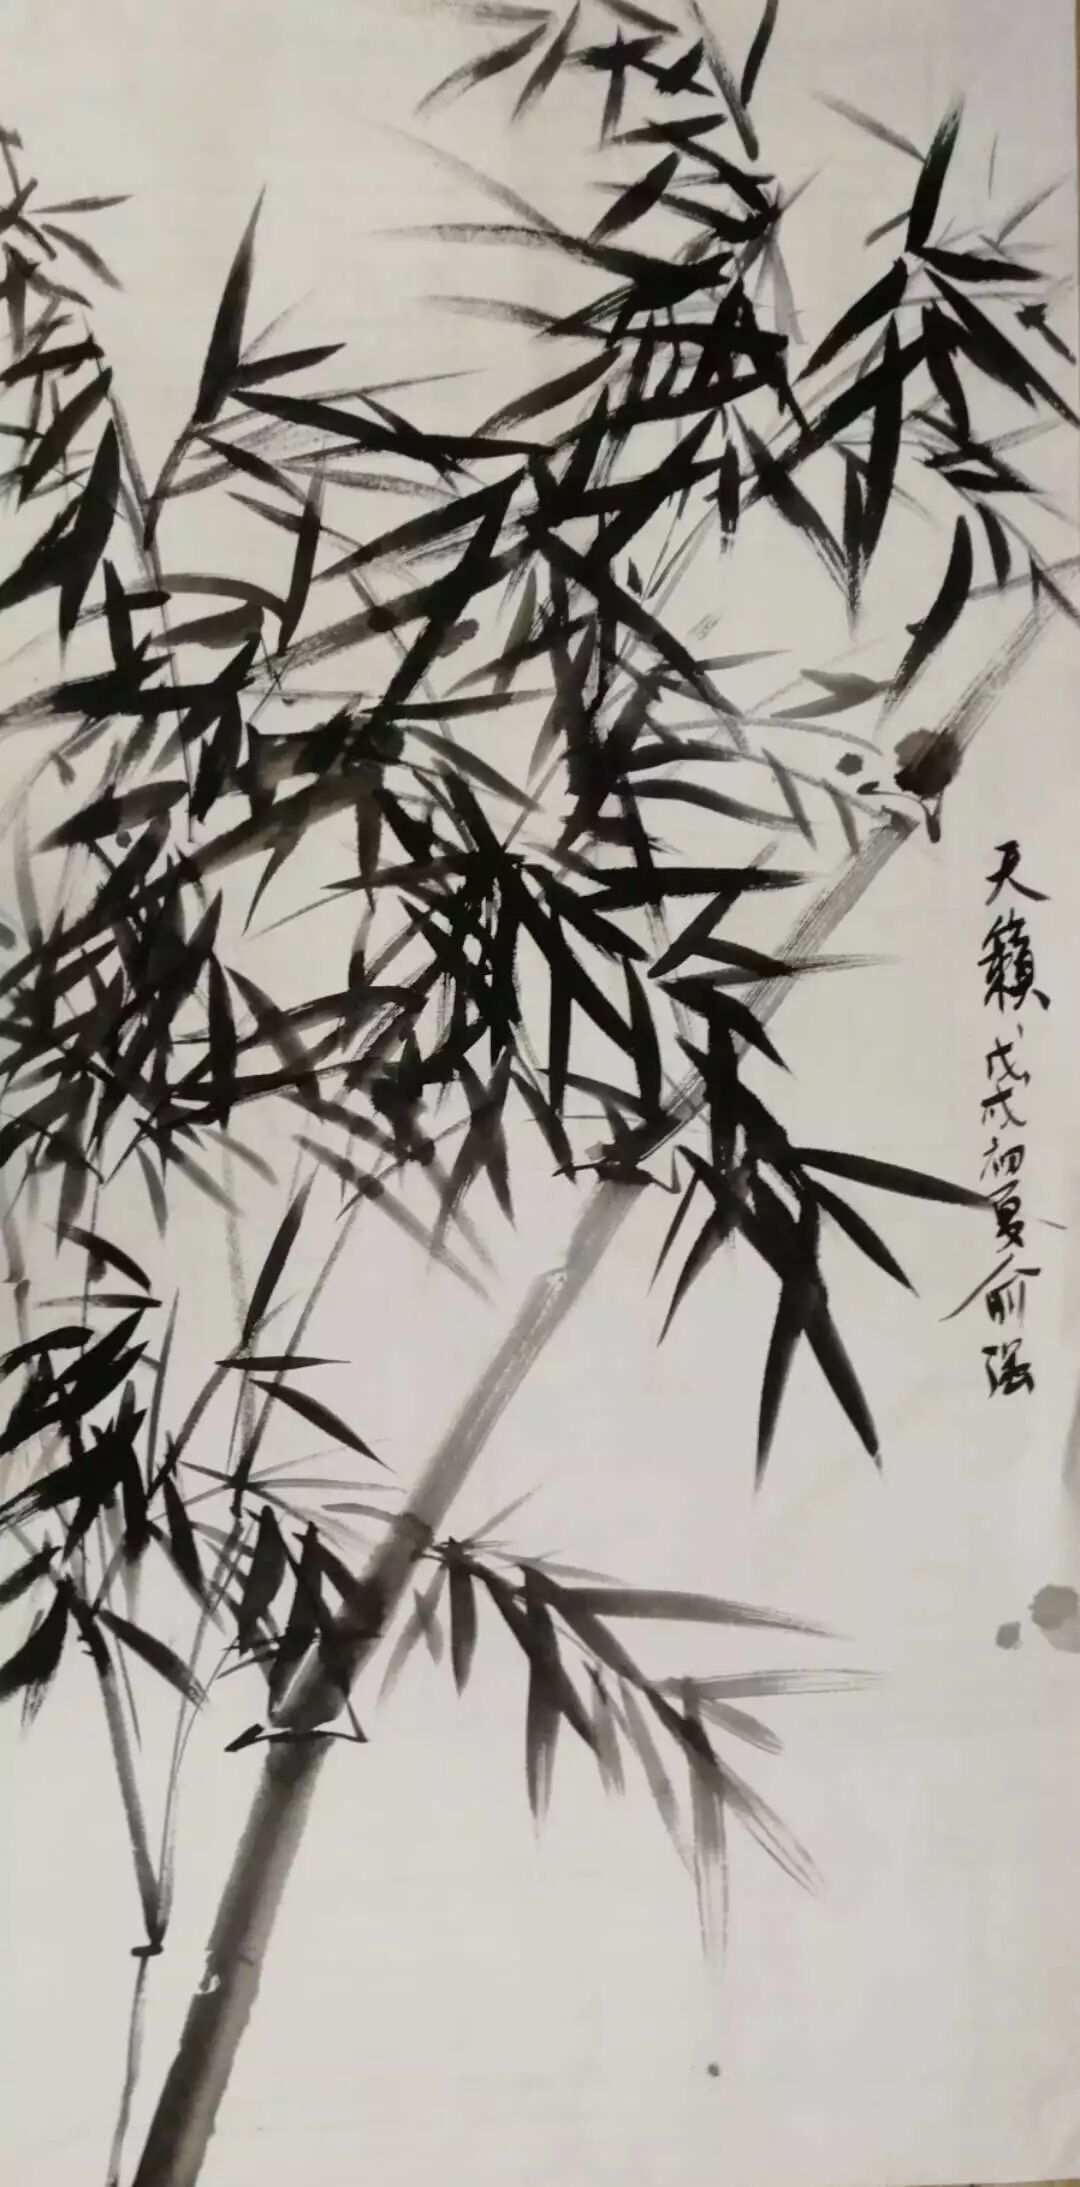 天籟戊戌初夏俞强